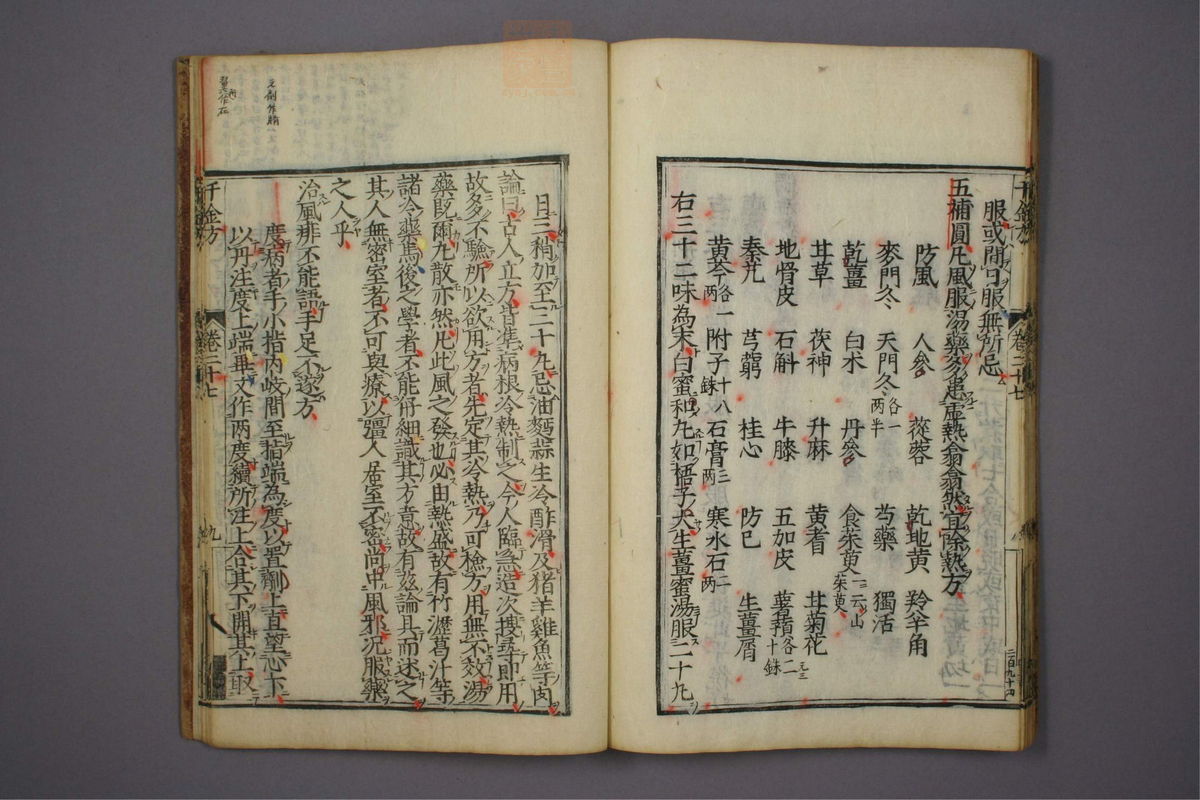 服或間日服無所忌
五補圓凡風服湯藥多患虛熱翕翕然宜除熱方
防風 人參 蓯蓉 乾地黃 羚羊角
麥門冬 天門冬各一兩半 芍藥 獨活
乾薑 白朮 丹參 食茱萸一云山茱萸
甘草 茯神 升麻 黃耆 甘菊花
地骨皮 石斛 牛膝 五加皮 薯蕷各二十銖
秦艽 芎藭 桂心 防己 生薑屑
黃芩各一兩 附子十八銖 石膏三兩 寒水石二兩
右三十二味為末白蜜和丸如梧子大生薑蜜湯服二十丸
日三稍加至三十丸忌油麵蒜生冷酢滑及猪羊雞魚等肉
論曰古人立方皆準病根冷熱制之今人臨急造次搜尋即用
故多不驗所以欲用方者先定其冷熱乃可檢方用無不效湯
藥既爾丸散亦然凡此風之發也必由熱盛故有竹瀝葛汁等
諸冷藥焉後之學者不能仔細識其方意故有茲論具而述之
其人無密室者不可與療以彊人居室不密尚中風邪況服藥
之人乎
治風痱不能語手足不遂方
度病者手小指內歧間至指端為度以置臍上直望心下
以丹注度上端畢又作兩度續所注上合其下開其上取
千金方
卷二十七
九
千金方
卷二十七
二百九十四